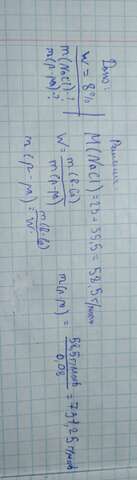 Дано:
W = 8%
m(NaCl)-?
m(р-ра)-?
Решение:
M(NaCl)=23+35,5=58,5 г/моль
W= m(в-ва) / m(р-ра)
m(р-ра)= m(в-ва) / W
m(р-ра) = 58,5 г/моль / 0,08 = 731,25 г/моль